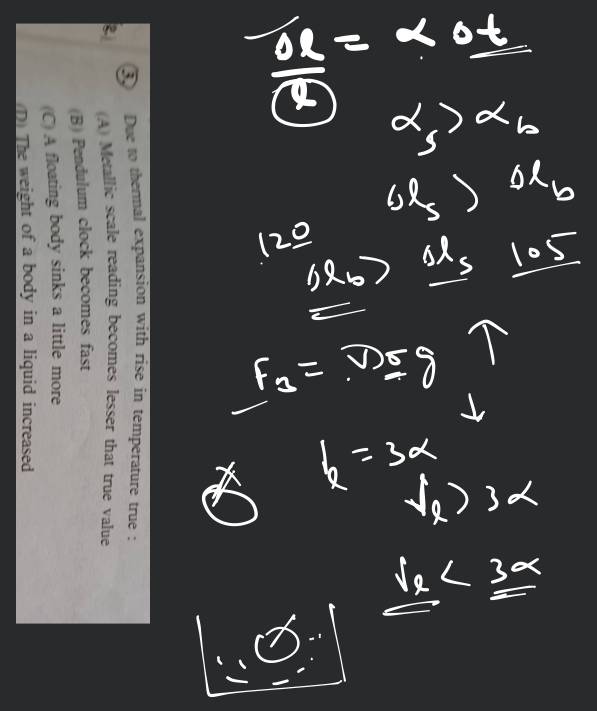 (3) Due to thermal expansion with rise in temperature true :
(A) Metallic scale reading becomes lesser that true value
(B) Pendulum clock becomes fast
(C) A floating body sinks a little more
(D) The weight of a body in a liquid increased
Δl/l = α Δt
αs > αb
Δls > Δlb
120
Δlb > Δls 105
FB = Vσg ↑
↓
γl = 3α
γl > 3α
γl < 3α